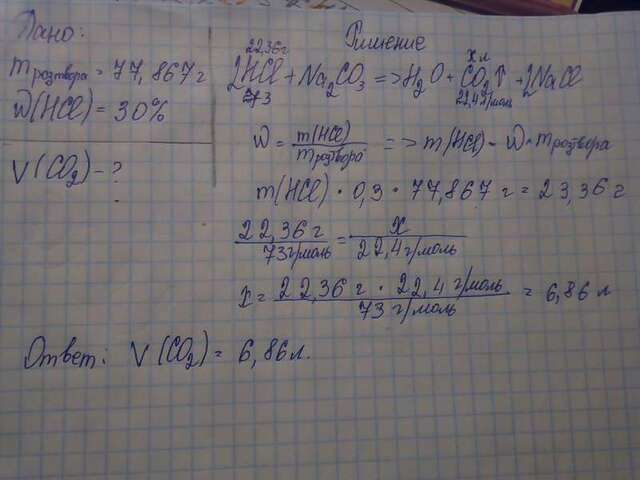 Дано:
m розтвора = 77,867 г
W(HCl) = 30%
V(CO₂) - ?
Ришение
22,36 г
x л
2HCl + Na₂CO₃ => H₂O + CO₂↑ + 2NaCl
73
22,4 г/моль
W = m(HCl) / m розтвора => m(HCl) = W · m розтвора
m(HCl) · 0,3 · 77,867 г = 23,36 г
22,36 г / 73 г/моль = x / 22,4 г/моль
x = 22,36 г · 22,4 г/моль / 73 г/моль = 6,86 л
Ответ: V(CO₂) = 6,86 л.